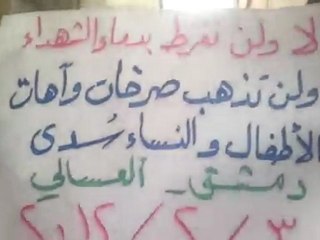 لا ولن نفرط بدماء الشهداء
ولن تذهب صرخات وآهات
الأطفال والنساء سُدى
دمشق - العسالي
٢٠١٢/٢/٣